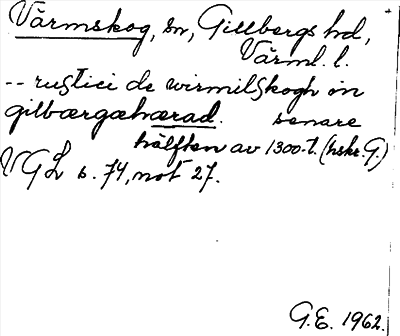 Värmskog, sn, Gillbergs hd,
Värml. l.
-- rustici de wirmilskogh in
gilbærgæhærad. senare
hälften av 1300-t. (hskr. G.)
VGL s. 74, not 27.
G.E. 1962.